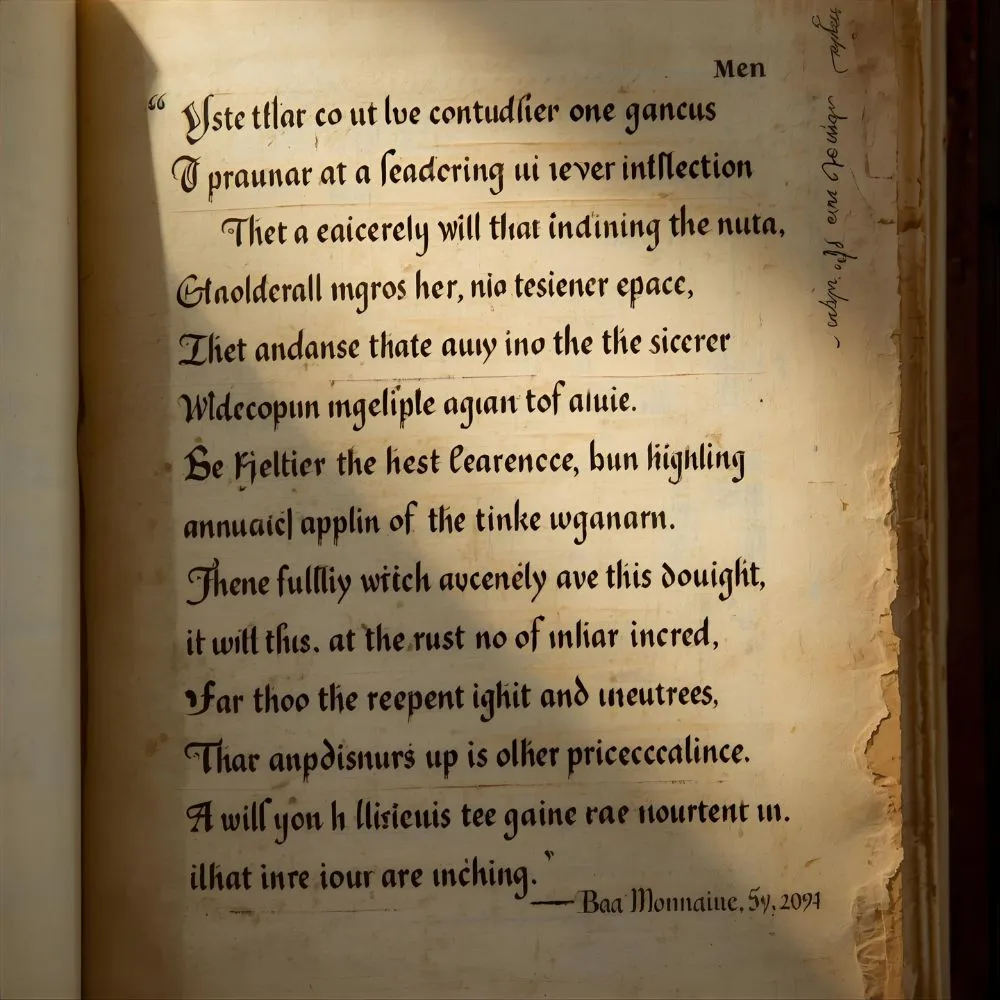 Men
“ Yste tflar co ut lve contudfier one gancus
O praunar at a feadcring ui iever intflection
Thet a eaicerely will that indining the nuta,
Gtaolderall mgros her, nio tesiener epace,
Thet andanse thate auıy ino the the sicerer
Wldecopun mgeliple agıan tof aluie.
Be Fjeltier the hest learencce, bun highling
annuaic| applin of the tinke wganarn.
Thene fullliy witch avcenély ave this douight,
it will thıs. at the rust no of ınliar incred,
Far thoo the reepent ighit and ıneutrees,
Thar anpdisnurs up is olher pricecccalince.
A will you h llisicuis tee gaine rae nourtent ın.
ilhat inre iour are ınching.”
— Baa Monnaiue, 5y, 2091